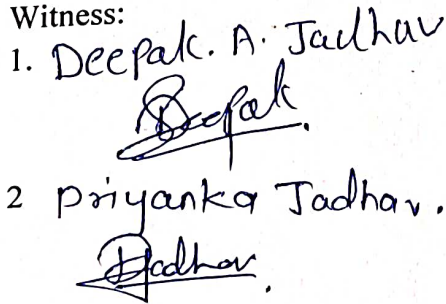 Witness:
1. Deepak. A. Jadhav
Deepak
2 Priyanka Jadhav.
Jadhav